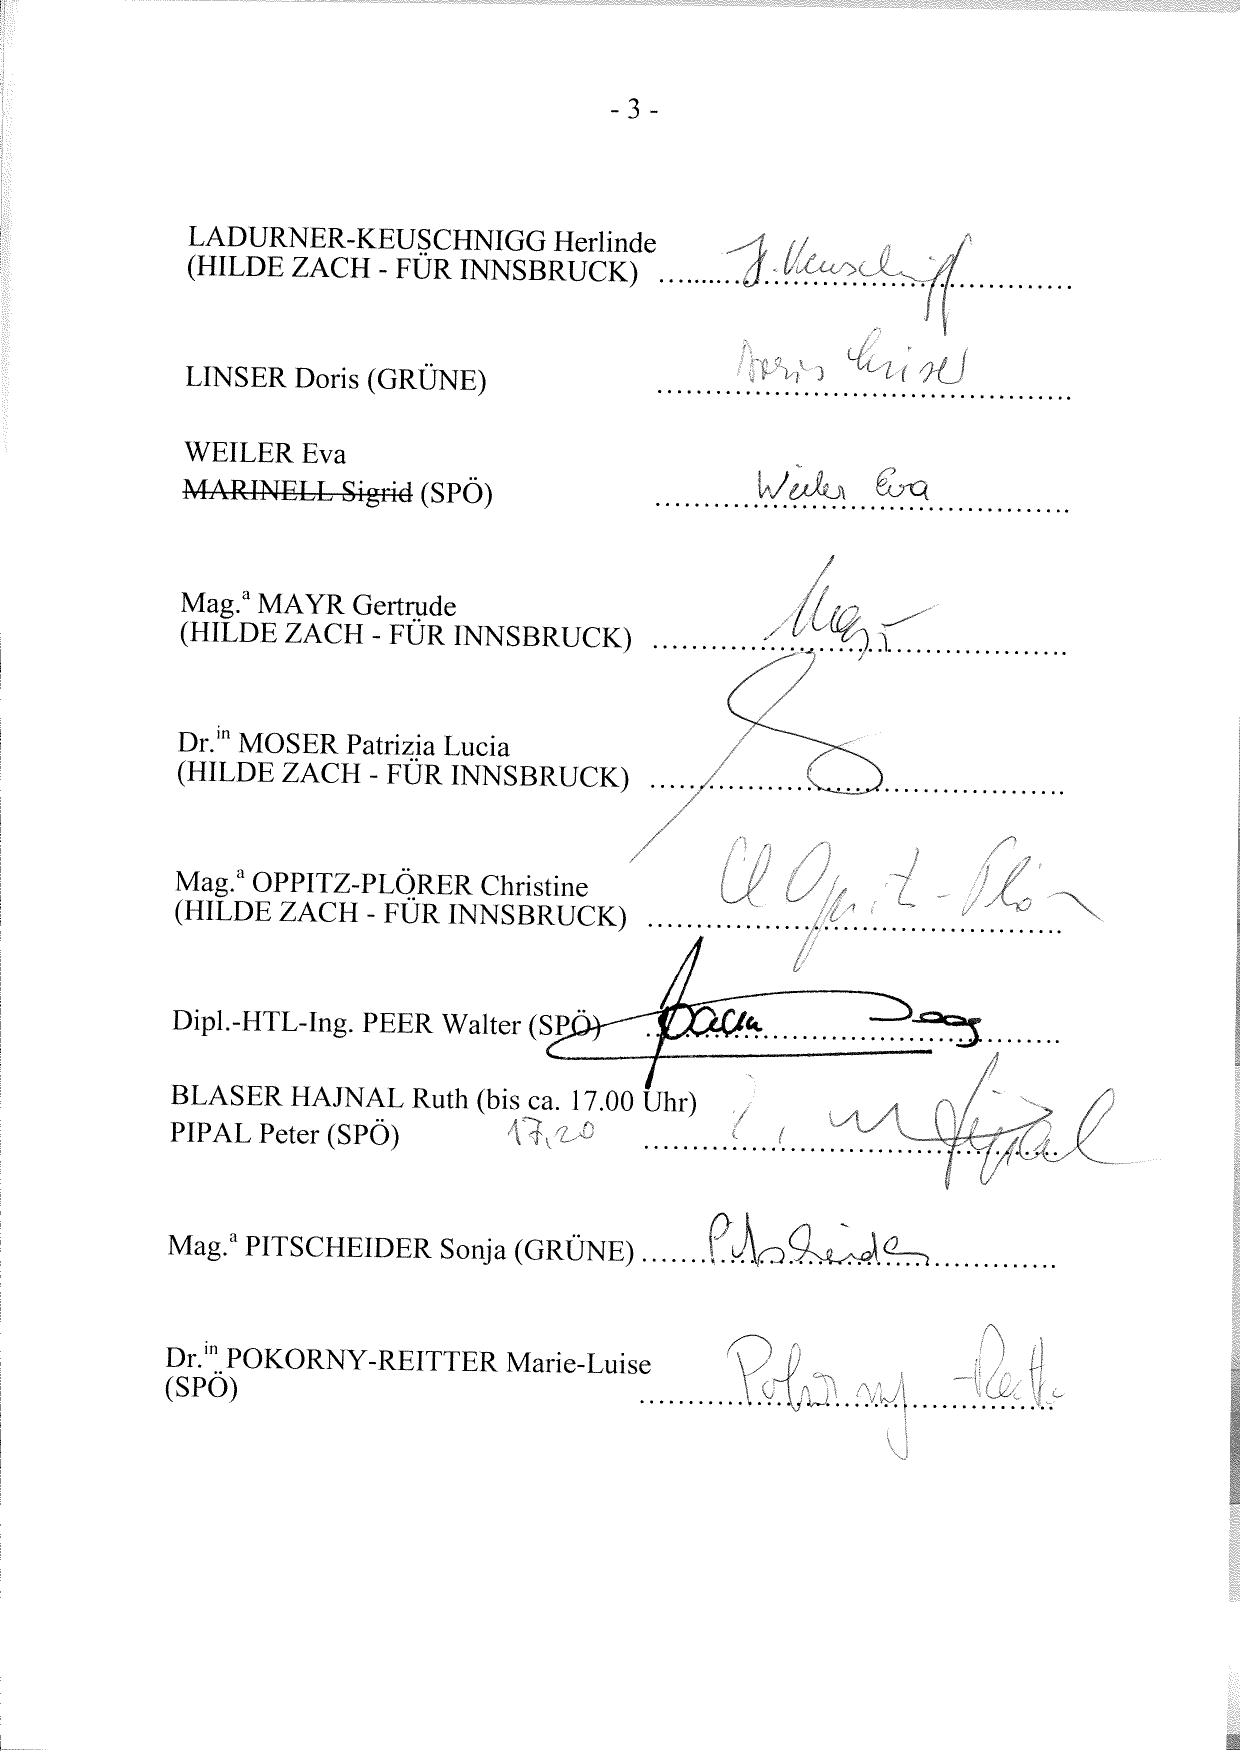 - 3 -
LADURNER-KEUSCHNIGG Herlinde
(HILDE ZACH - FÜR INNSBRUCK) ........................................
LINSER Doris (GRÜNE) ........................................ Doris Linser
WEILER Eva
MARINELL Sigrid (SPÖ) ........................................ Weiler Eva
Mag.ª MAYR Gertrude
(HILDE ZACH - FÜR INNSBRUCK) ........................................ Mayr
Dr.ⁱⁿ MOSER Patrizia Lucia
(HILDE ZACH - FÜR INNSBRUCK) ........................................
Mag.ª OPPITZ-PLÖRER Christine
(HILDE ZACH - FÜR INNSBRUCK) ........................................
Dipl.-HTL-Ing. PEER Walter (SPÖ) ........................................
BLASER HAJNAL Ruth (bis ca. 17.00 Uhr)
PIPAL Peter (SPÖ) 17,20 ........................................
Mag.ª PITSCHEIDER Sonja (GRÜNE) ........................................ Pitscheider
Dr.ⁱⁿ POKORNY-REITTER Marie-Luise
(SPÖ) ........................................ Pokorny-Reitter